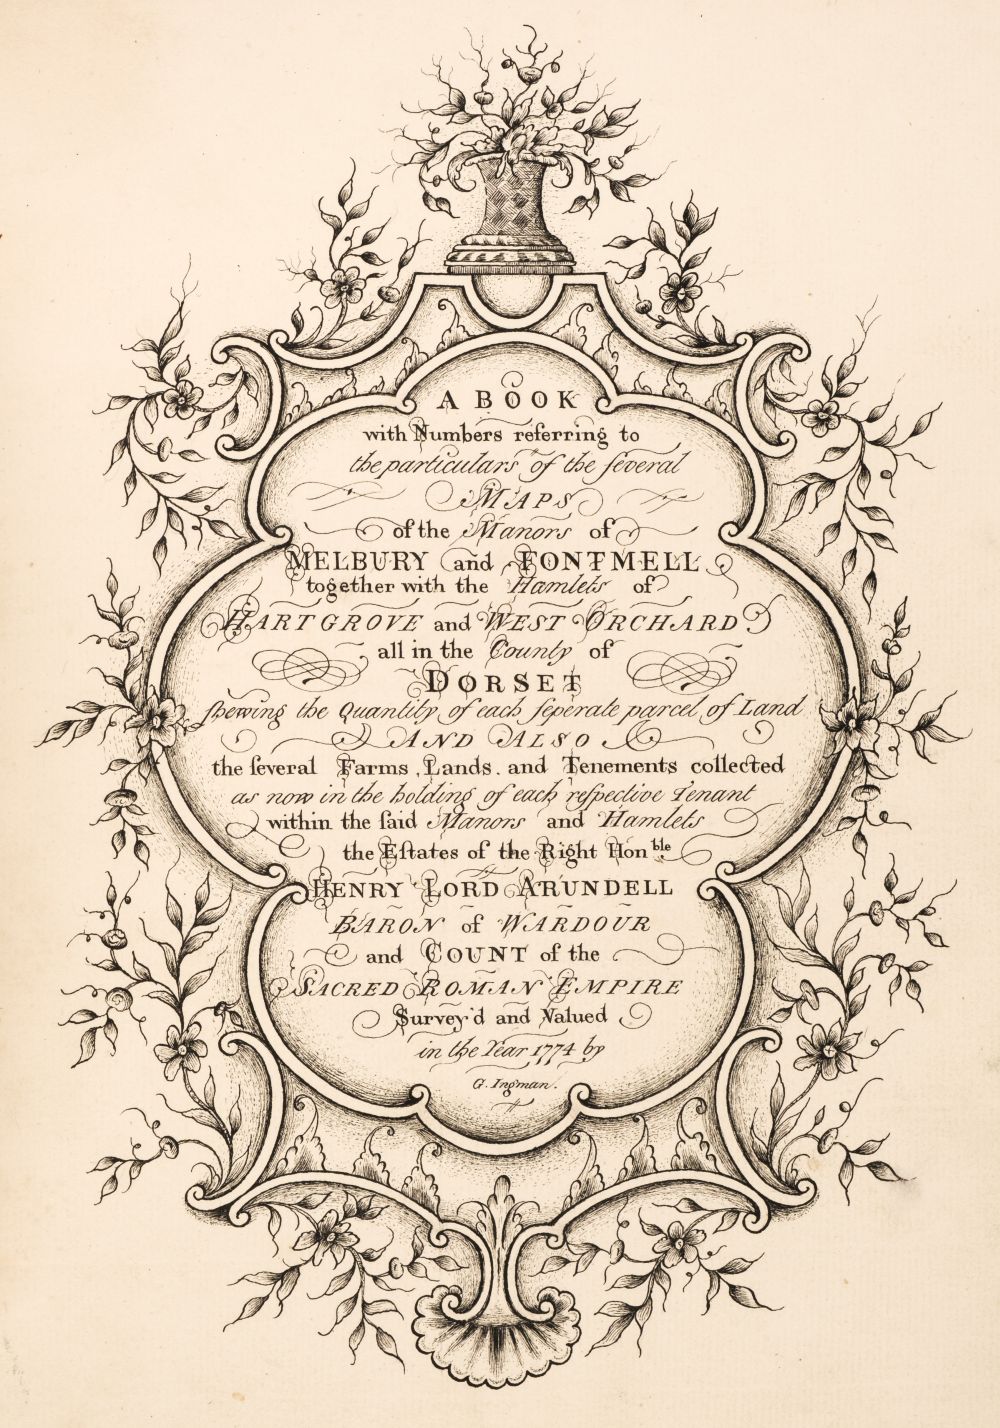 A BOOK
with Numbers referring to
the particulars of the ſeveral
MAPS
of the Manors of
MELBURY and FONTMELL
together with the Hamlets of
HARTGROVE and WEST ORCHARD
all in the County of
DORSET
ſhewing the Quantity of each ſeperate parcel of Land
AND ALSO
the ſeveral Farms, Lands. and Tenements collected
as now in the holding of each reſpective Tenant
within the ſaid Manors and Hamlets
the Eſtates of the Right Hon ble
HENRY LORD ARUNDELL
BARON of WARDOUR
and COUNT of the
SACRED ROMAN EMPIRE
Survey'd and Valued
in the Year 1774 by
G. Ingman.